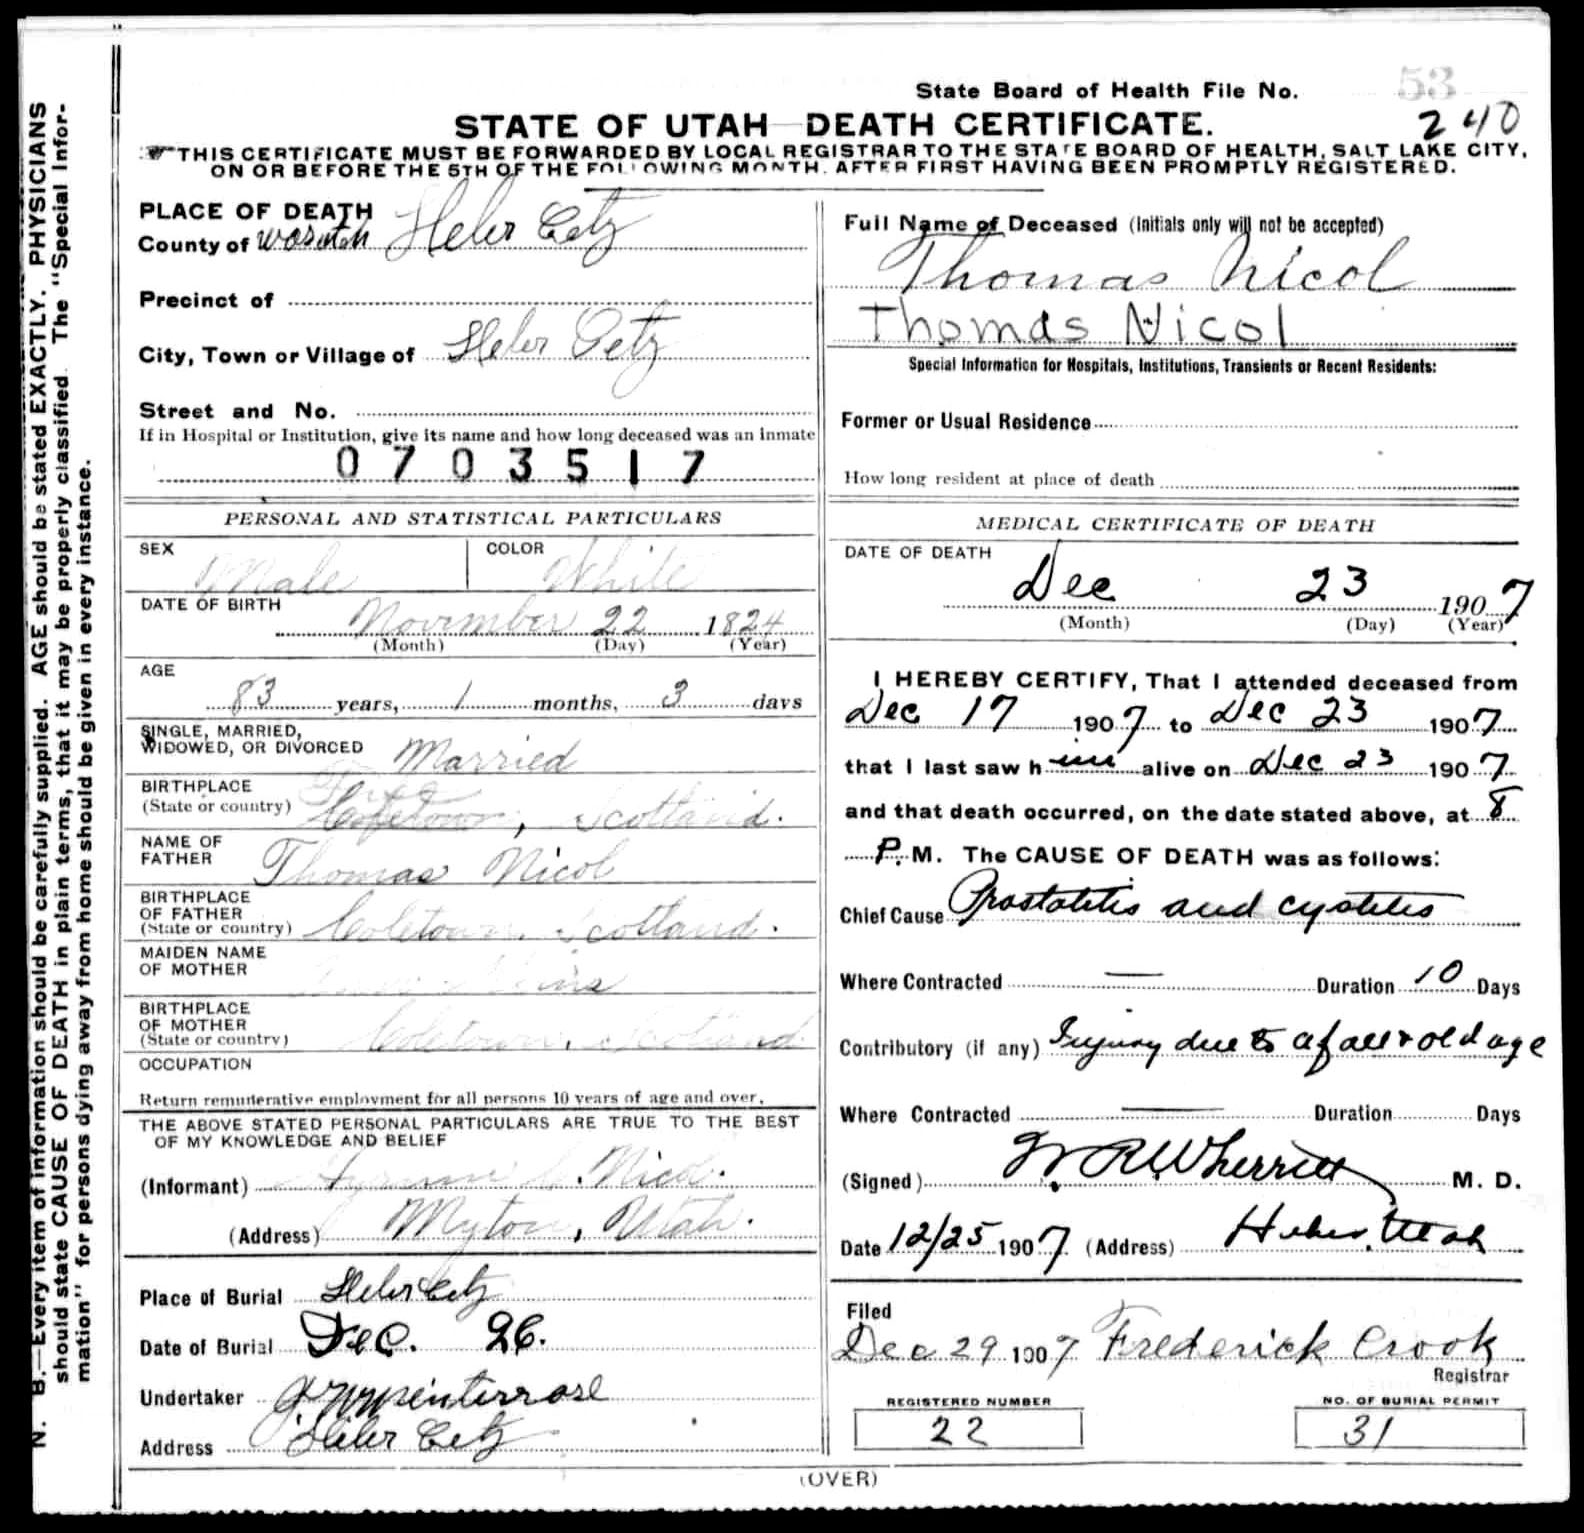 53
State Board of Health File No. 240
STATE OF UTAH—DEATH CERTIFICATE.
THIS CERTIFICATE MUST BE FORWARDED BY LOCAL REGISTRAR TO THE STATE BOARD OF HEALTH, SALT LAKE CITY,
ON OR BEFORE THE 5TH OF THE FOLLOWING MONTH, AFTER FIRST HAVING BEEN PROMPTLY REGISTERED.
N. B.—Every item of information should be carefully supplied. AGE should be stated EXACTLY. PHYSICIANS
should state CAUSE OF DEATH in plain terms, that it may be properly classified. The "Special Infor-
mation" for persons dying away from home should be given in every instance.
PLACE OF DEATH
County of Wasatch Heber City
Precinct of
City, Town or Village of Heber City
Street and No.
If in Hospital or Institution, give its name and how long deceased was an inmate
0703517
PERSONAL AND STATISTICAL PARTICULARS
SEX Male COLOR White
DATE OF BIRTH
November 22 1824
(Month) (Day) (Year)
AGE
83 years, 1 months, 3 days
SINGLE, MARRIED,
WIDOWED, OR DIVORCED Married
BIRTHPLACE
(State or country) Scotland.
NAME OF
FATHER Thomas Nicol
BIRTHPLACE
OF FATHER
(State or country) Coletown, Scotland.
MAIDEN NAME
OF MOTHER
BIRTHPLACE
OF MOTHER
(State or country) Coletown, Scotland
OCCUPATION
Return remunerative employment for all persons 10 years of age and over.
THE ABOVE STATED PERSONAL PARTICULARS ARE TRUE TO THE BEST
OF MY KNOWLEDGE AND BELIEF
(Informant) Hyrum C. Nicol.
(Address) Myton, Utah.
Place of Burial Heber City
Date of Burial Dec. 26.
Undertaker
Address Heber City
Full Name of Deceased (Initials only will not be accepted)
Thomas Nicol
Thomas Nicol
Special Information for Hospitals, Institutions, Transients or Recent Residents:
Former or Usual Residence
How long resident at place of death
MEDICAL CERTIFICATE OF DEATH
DATE OF DEATH
Dec 23 1907
(Month) (Day) (Year)
I HEREBY CERTIFY, That I attended deceased from
Dec 17 1907 to Dec 23 1907
that I last saw him alive on Dec 23 1907
and that death occurred, on the date stated above, at 8
P. M. The CAUSE OF DEATH was as follows:
Chief Cause Prostatitis and cystitis
Where Contracted — Duration 10 Days
Contributory (if any) Injury due to a fall & old age
Where Contracted — Duration Days
(Signed) W R Wherritt M. D.
Date 12/25 1907 (Address) Heber, Utah
Filed
Dec 29 1907 Frederick Crook
Registrar
REGISTERED NUMBER
22
NO. OF BURIAL PERMIT
31
(OVER)